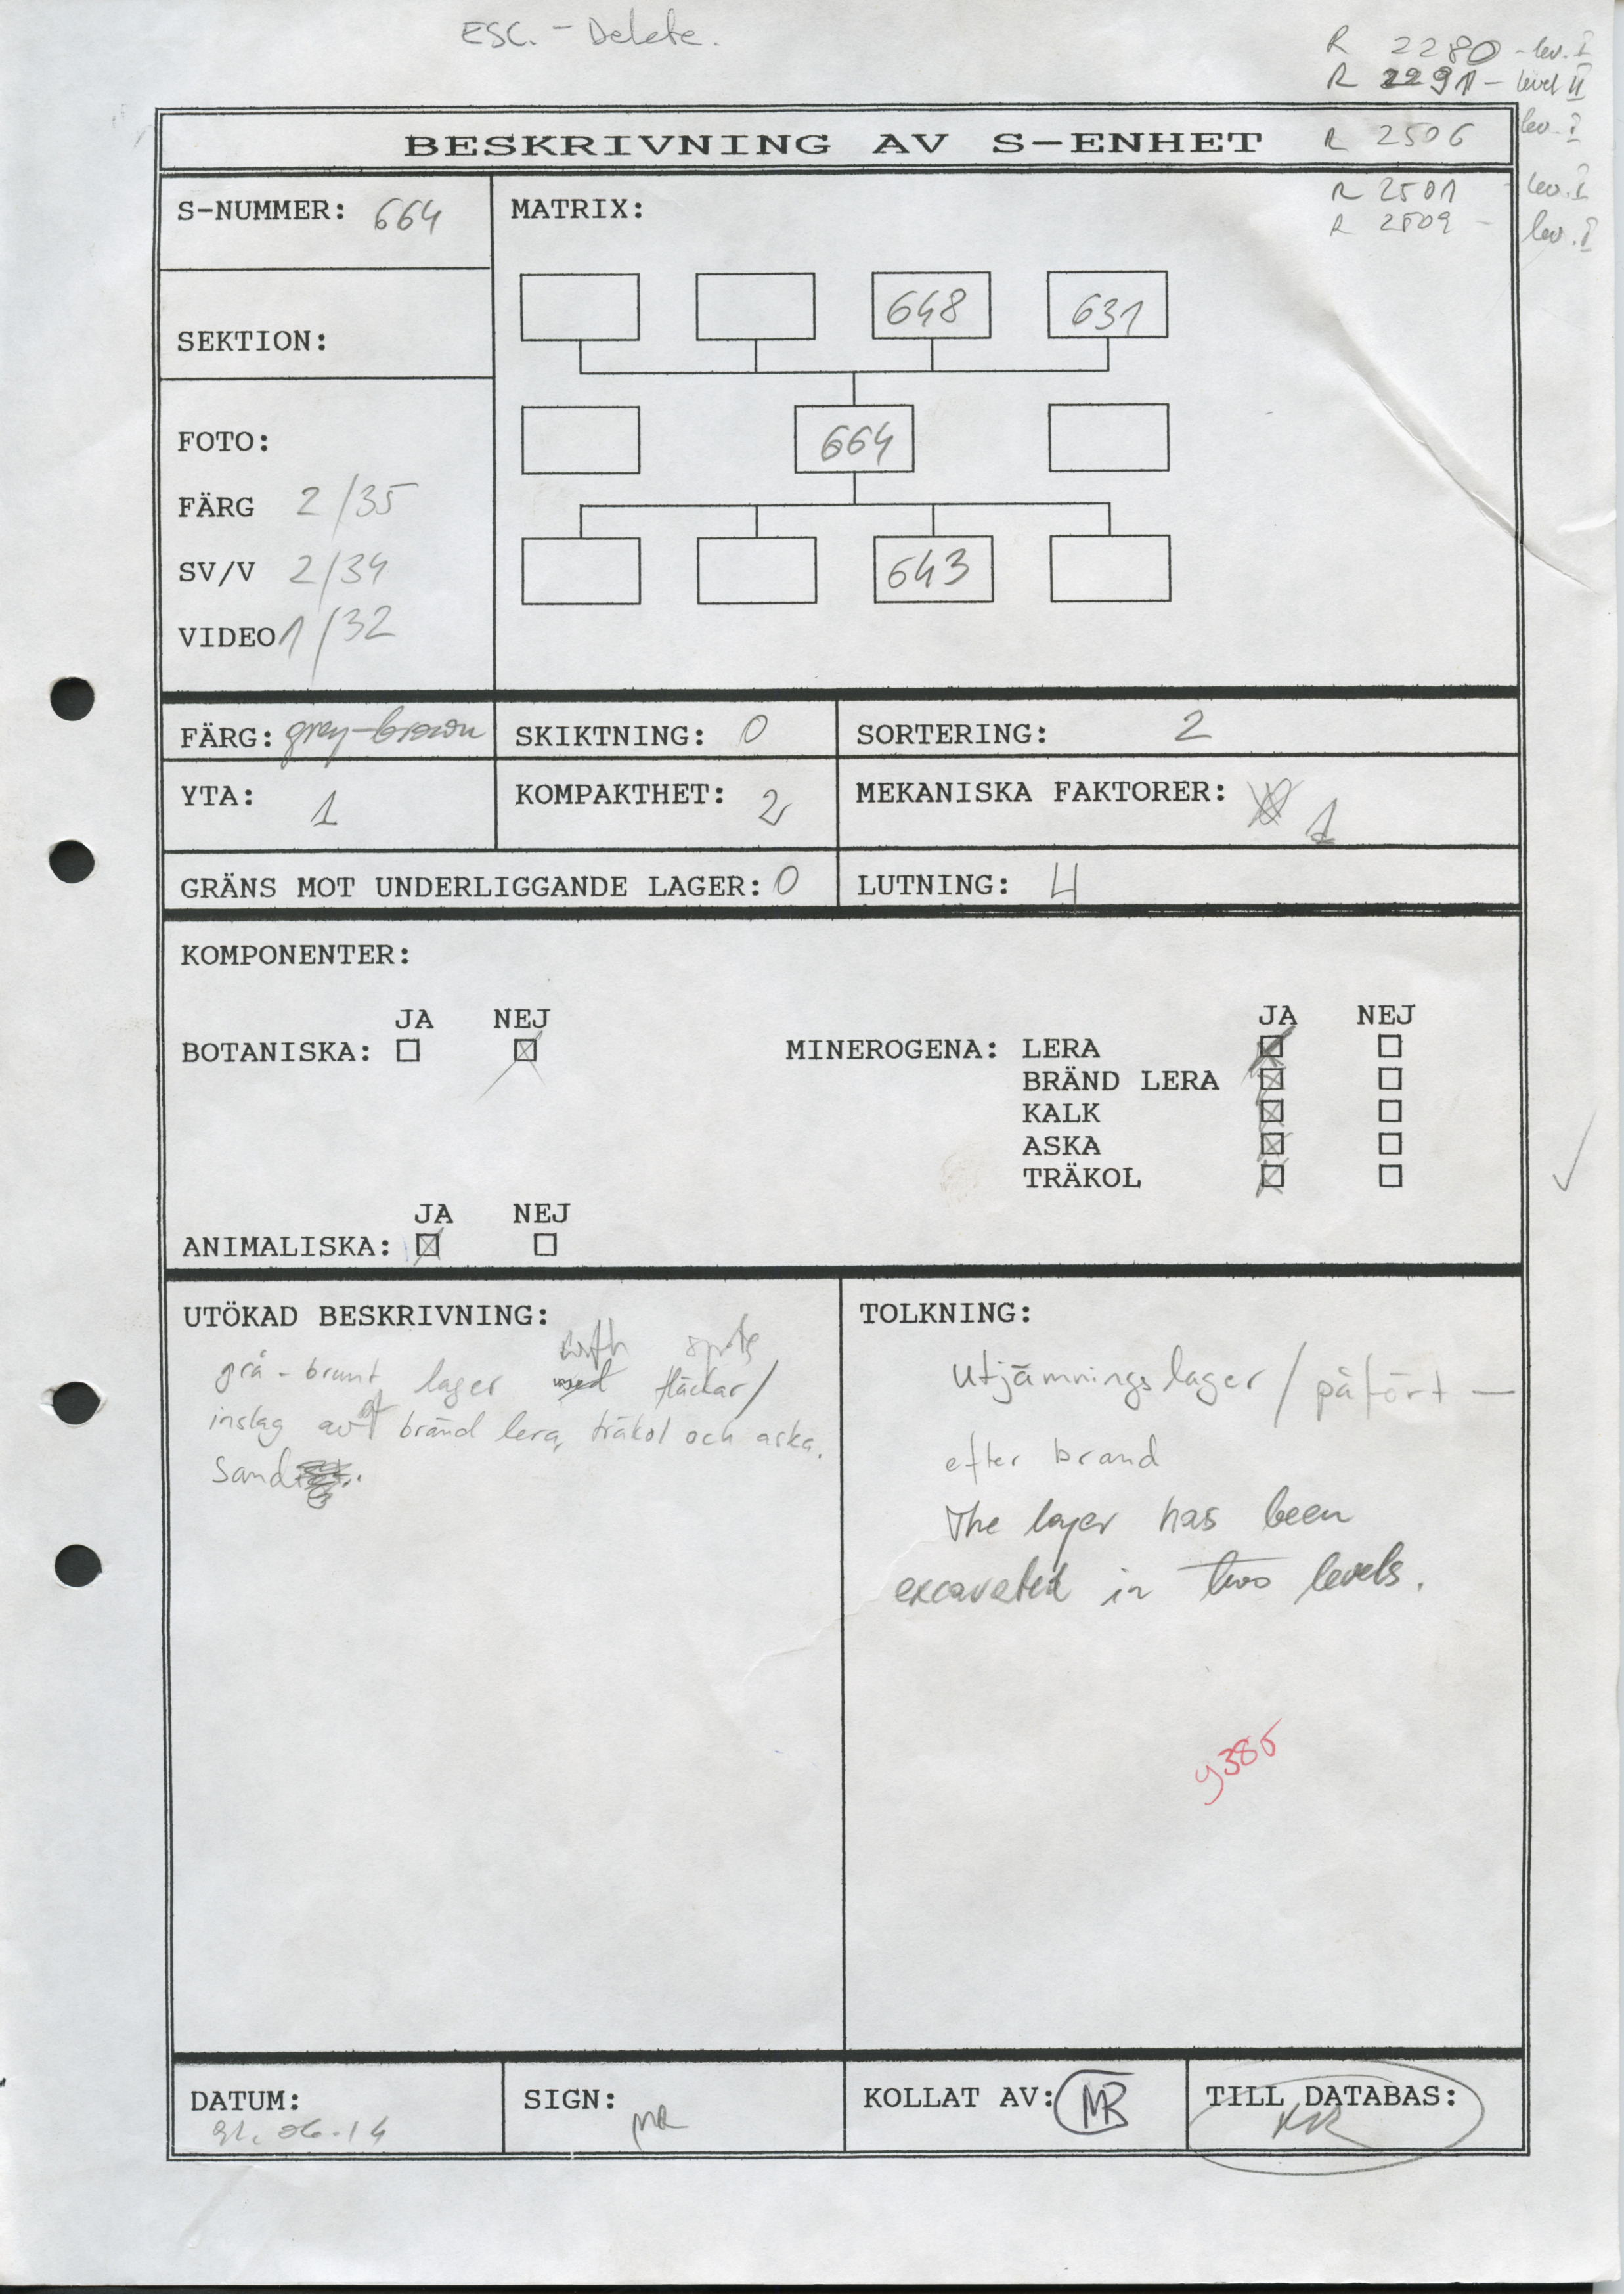 ESC. - Delete.
R 2280 - lev. I
R 2291 - level II
BESKRIVNING AV S-ENHET R 2506 lev. I
S-NUMMER: 664 MATRIX: R 2501 - lev. I
R 2509 - lev. I
648 631
SEKTION:
664
FOTO:
FÄRG 2/35
SV/V 2/34 643
VIDEO 1/32
FÄRG: grey-brown SKIKTNING: 0 SORTERING: 2
YTA: 1 KOMPAKTHET: 2 MEKANISKA FAKTORER: 1
GRÄNS MOT UNDERLIGGANDE LAGER: 0 LUTNING: 4
KOMPONENTER:
JA NEJ JA NEJ
BOTANISKA: MINEROGENA: LERA
BRÄND LERA
KALK
ASKA
TRÄKOL
JA NEJ
ANIMALISKA:
UTÖKAD BESKRIVNING: TOLKNING:
with spots
grå-brunt lager med fläckar/
inslag av of bränd lera, träkol och aska.
Sand
utjämningslager/påfört -
efter brand
The layer has been
excavated in two levels.
y385
DATUM: SIGN: KOLLAT AV: MB TILL DATABAS:
MR